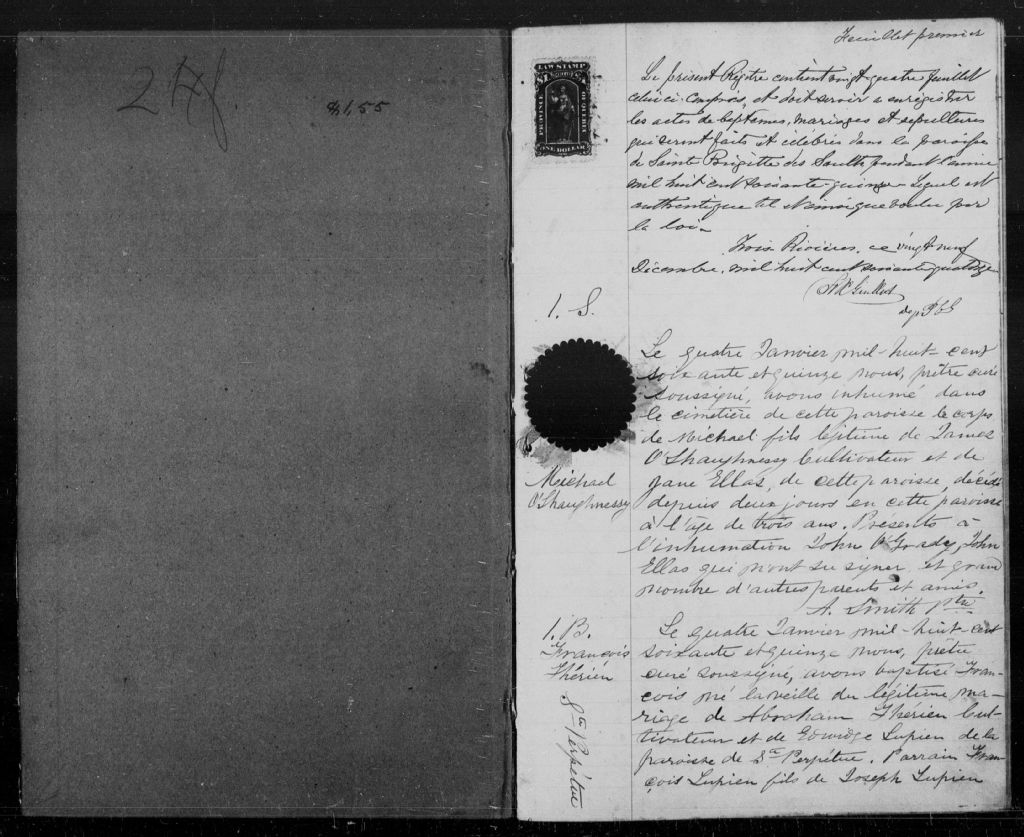 24f.
$1,55
Feuillet premier
LAW STAMP
PROVINCE
OF QUEBEC
ONE DOLLAR
Le présent Régitre contient vingt quatre feuillet
celui ci compris, et doit servir a enrégistrer
les actes de baptemes, mariages et sépultures
qui seront faits et célébrés dans la paroisse
de Sainte Brigitte des Saults pendant l'année
mil huit cent soixante quinze - lequel est
authentique tel et ainsi que voulu par
la loi -
Trois Rivières, ce vingt neuf
Décembre, mil huit cent soixante quatorze
dep P C S
1. S.
Michael
O'Shaughnessy
Le quatre Janvier mil-huit-cent
soixante et quinze nous, prêtre curé
soussigné, avons inhumé dans
le cimetière de cette paroisse le corps
de Michael fils légitime de James
O'Shaughnessy Cultivateur et de
Jane Ellas, de cette paroisse, décédé
depuis deux jours en cette paroisse
à l'âge de trois ans. Présents à
l'inhumation John O'Grady, John
Ellas qui n'ont su signer, et grand
nombre d'autres parents et amis.
A. Smith Ptre
1. B.
François
Thérien
Ste Perpétue
Le quatre Janvier mil-huit-cent
soixante et quinze nous, prêtre
curé soussigné, avons baptisé Fran-
çois né la veille du légitime ma-
riage de Abraham Thérien Cul-
tivateur et de Edwidge Lupien de la
paroisse de Ste Perpétue. Parrain Fran-
çois Lupien fils de Joseph Lupien